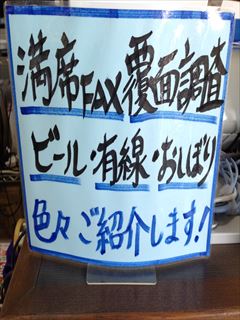 満席FAX覆面調査
ビール・有線・おしぼり
色々ご紹介します!